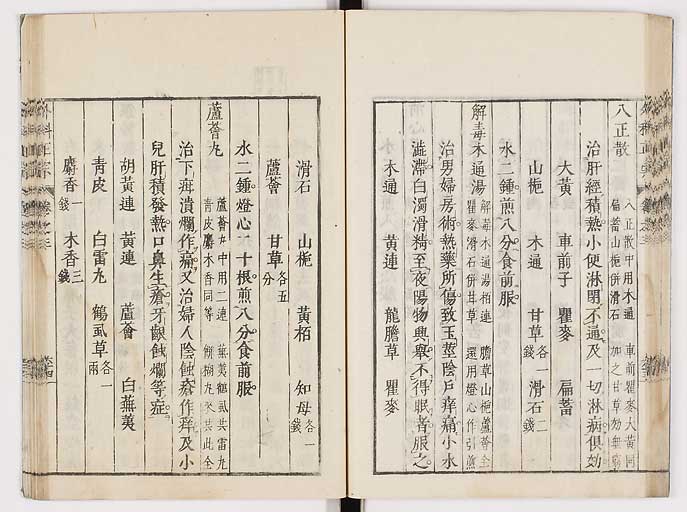 八正散
八正散中用木通 車前瞿麥大黃同
扁蓄山梔併滑石 加之甘草効無窮
治肝經積熱小便淋閉不通及一切淋病俱効
大黃 車前子 瞿麥 扁蓄
山梔 木通 甘草各一錢 滑石二錢
水二鍾煎八分食前服
解毒木通湯
解毒木通湯栢連 膽草山梔蘆薈全
瞿麥滑石併甘草 還用燈心作引煎
治男婦房術熱藥所傷致玉莖陰戶痒痛小水
澁滯白濁滑精至夜陽物興舉不得眠者服之
木通 黃連 龍膽草 瞿麥
滑石 山梔 黃栢 知母各一錢
蘆薈 甘草各五分
水二鍾燈心二十根煎八分食前服
蘆薈丸
蘆薈丸中用二連 蕪荑鶴虱共雷丸
青皮麝木香同等 餅糊丸
治下疳潰爛作痛又治婦人陰蝕瘡作痒及小
兒肝積發熱口鼻生瘡牙齦蝕爛等症
胡黃連 黃連 蘆薈 白蕪荑
青皮 白雷丸 鶴虱草各一兩
麝香一錢 木香三錢
外科正宗 卷之三